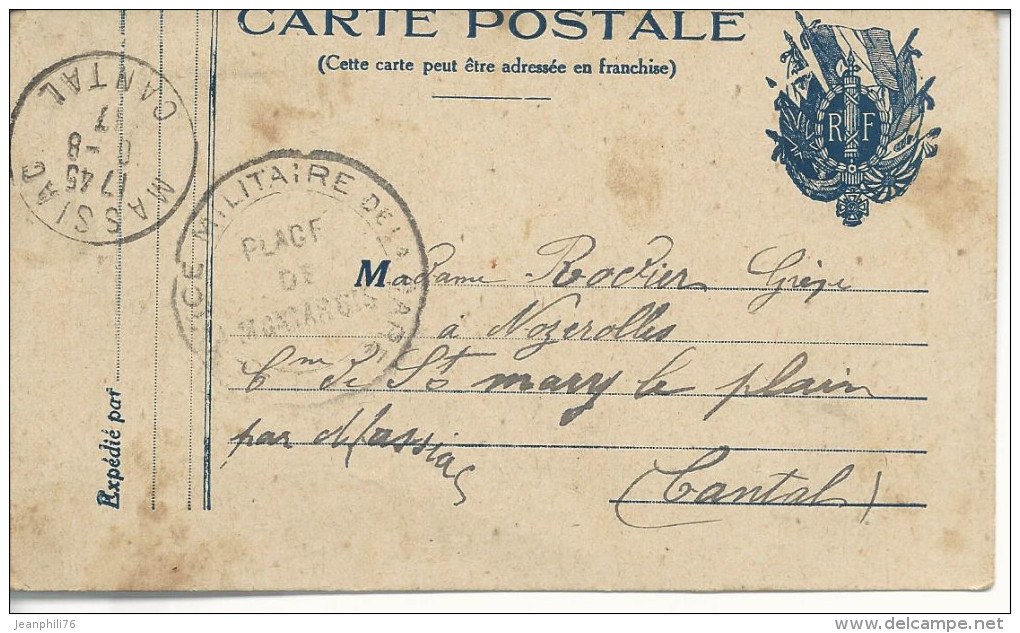 CARTE POSTALE
(Cette carte peut être adressée en franchise)
R F
MASSIAC
1745
8
CANTAL
MILITAIRE DE LA
PLACE
DE
Expédié par
Madame Rodier
à Nozerolles
Cne de St mary le plain
par Massiac
(Cantal)
jeanphili76
www.delcampe.net